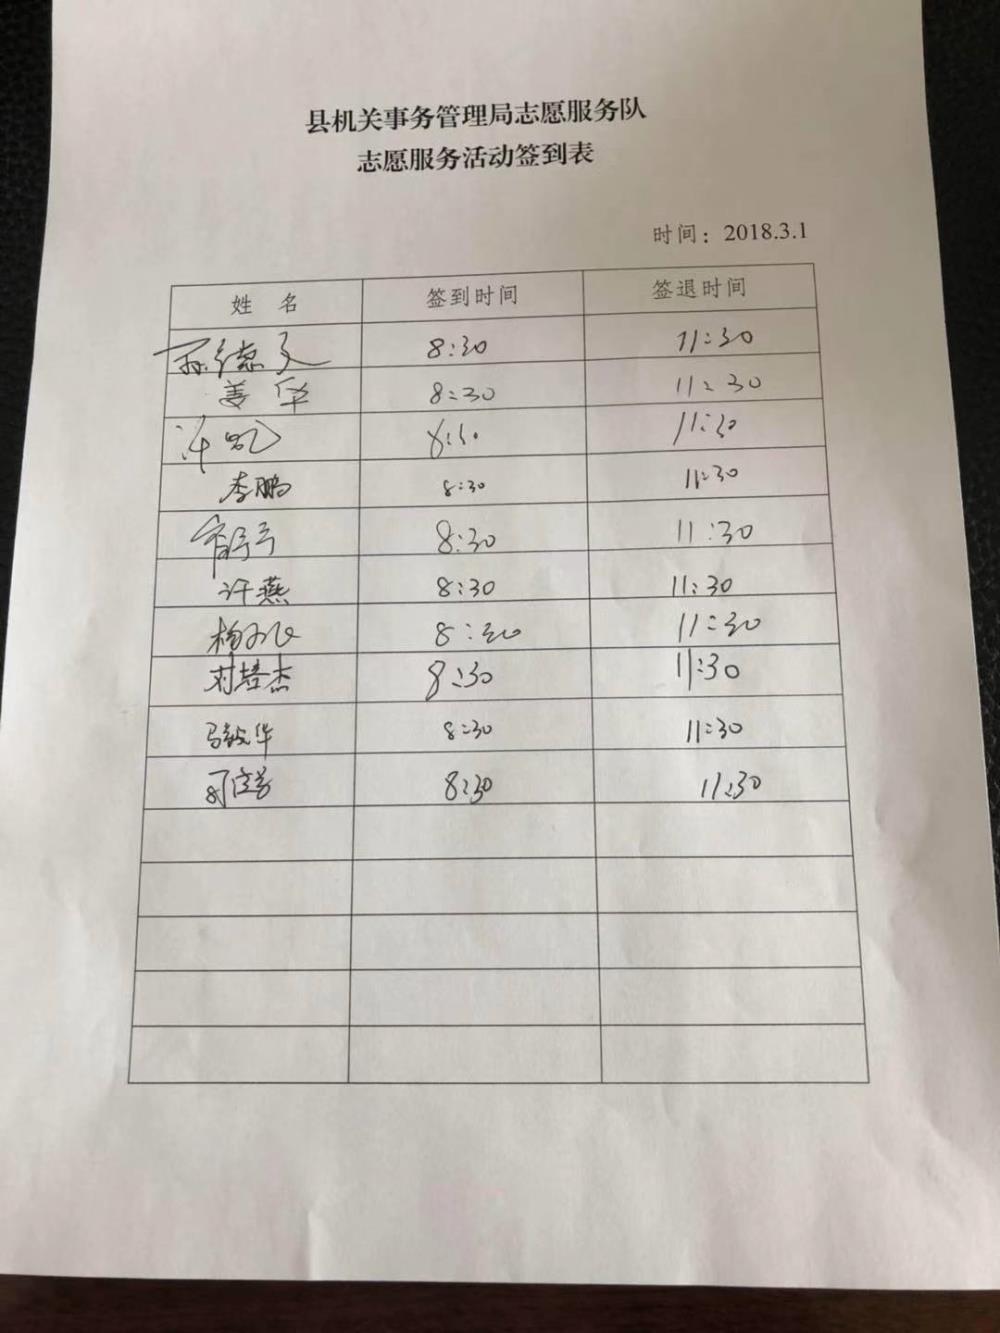 县机关事务管理局志愿服务队
志愿服务活动签到表
时间：2018.3.1
姓 名 签到时间 签退时间
8:30 11:30
姜华 8:30 11:30
8:30 11:30
李鹏 8:30 11:30
8:30 11:30
许燕 8:30 11:30
8:30 11:30
刘培杰 8:30 11:30
马敏华 8:30 11:30
8:30 11:30